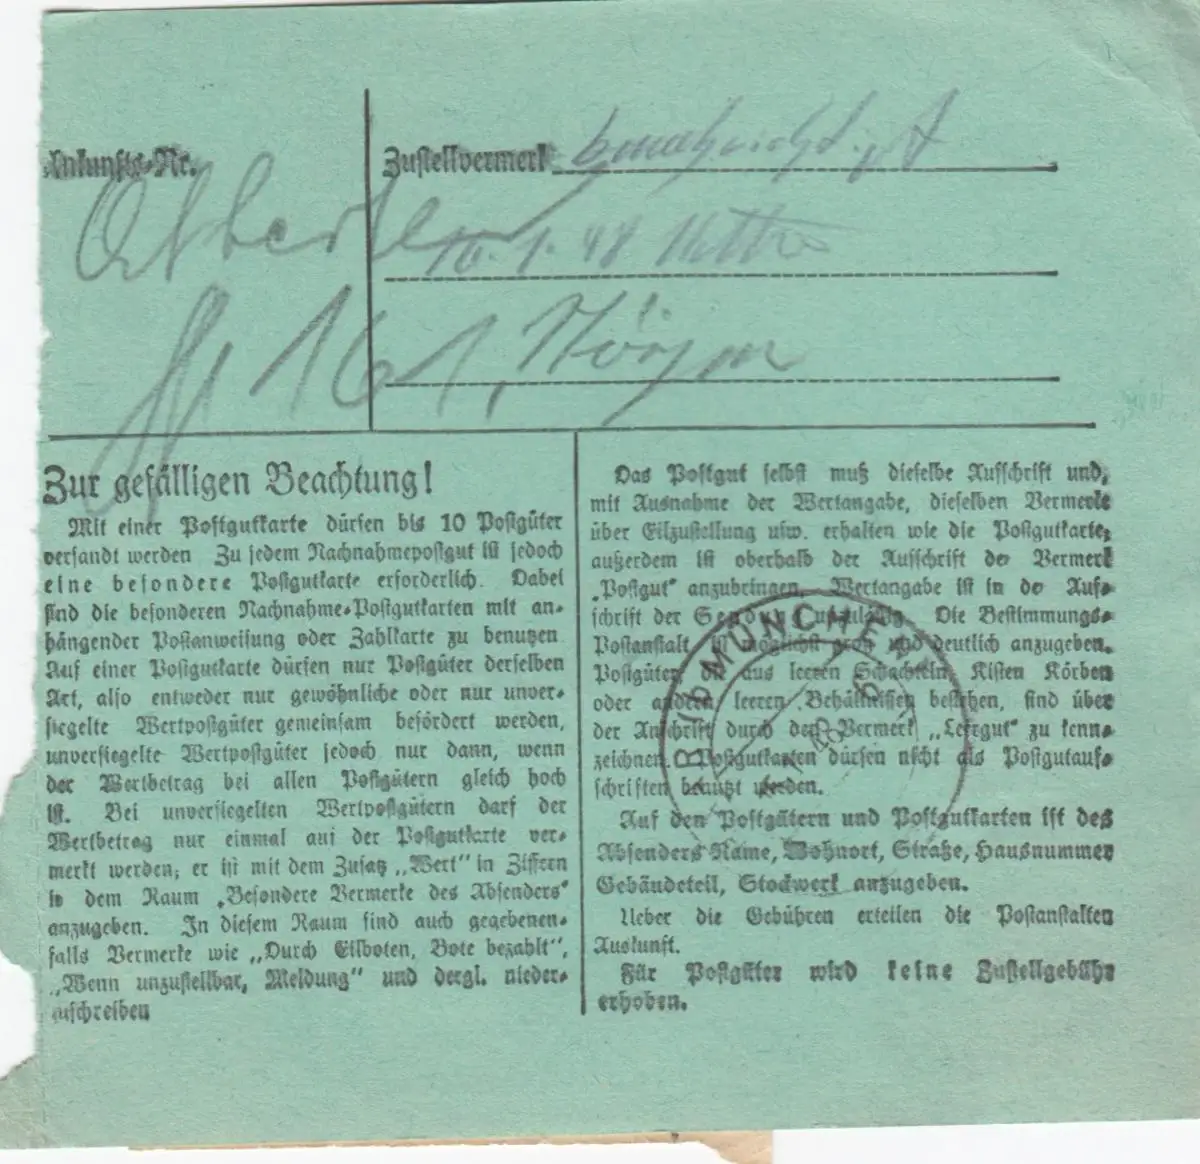 Ankunfts-Nr.
Zustellvermerk
10. 1. 48
161,
Zur gefälligen Beachtung!
Mit einer Postgutkarte dürfen bis 10 Postgüter
versandt werden Zu jedem Nachnahmepostgut ist jedoch
eine besondere Postgutkarte erforderlich. Dabei
sind die besonderen Nachnahme-Postgutkarten mit an-
hängender Postanweisung oder Zahlkarte zu benutzen
Auf einer Postgutkarte dürfen nur Postgüter derselben
Art, also entweder nur gewöhnliche oder nur unver-
siegelte Wertpostgüter gemeinsam befördert werden,
unversiegelte Wertpostgüter jedoch nur dann, wenn
der Wertbetrag bei allen Postgütern gleich hoch
ist. Bei unversiegelten Wertpostgütern darf der
Wertbetrag nur einmal auf der Postgutkarte ver-
merkt werden; er ist mit dem Zusatz „Wert" in Ziffern
in dem Raum „Besondere Vermerke des Absenders"
anzugeben. In diesem Raum sind auch gegebenen-
falls Vermerke wie „Durch Eilboten, Bote bezahlt",
„Wenn unzustellbar, Meldung" und dergl. nieder-
zuschreiben
Das Postgut selbst muß dieselbe Aufschrift und,
mit Ausnahme der Wertangabe, dieselben Vermerke
über Eilzustellung usw. erhalten wie die Postgutkarte;
außerdem ist oberhalb der Aufschrift der Vermerk
„Postgut" anzubringen. Wertangabe ist in der Auf-
schrift der Sendung unzulässig. Die Bestimmungs-
Postanstalt ist möglichst groß und deutlich anzugeben.
Postgüter, die aus leeren Schachteln, Kisten Körben
oder andern leeren Behältnissen bestehen, sind über
der Anschrift durch den Vermerk „Leergut" zu kenn-
zeichnen. Postgutkarten dürfen nicht als Postgutauf-
schriften benutzt werden.
Auf den Postgütern und Postgutkarten ist des
Absenders Name, Wohnort, Straße, Hausnummer
Gebäudeteil, Stockwerk anzugeben.
Ueber die Gebühren erteilen die Postanstalten
Auskunft.
Für Postgüter wird keine Zustellgebühr
erhoben.
MÜNCHEN